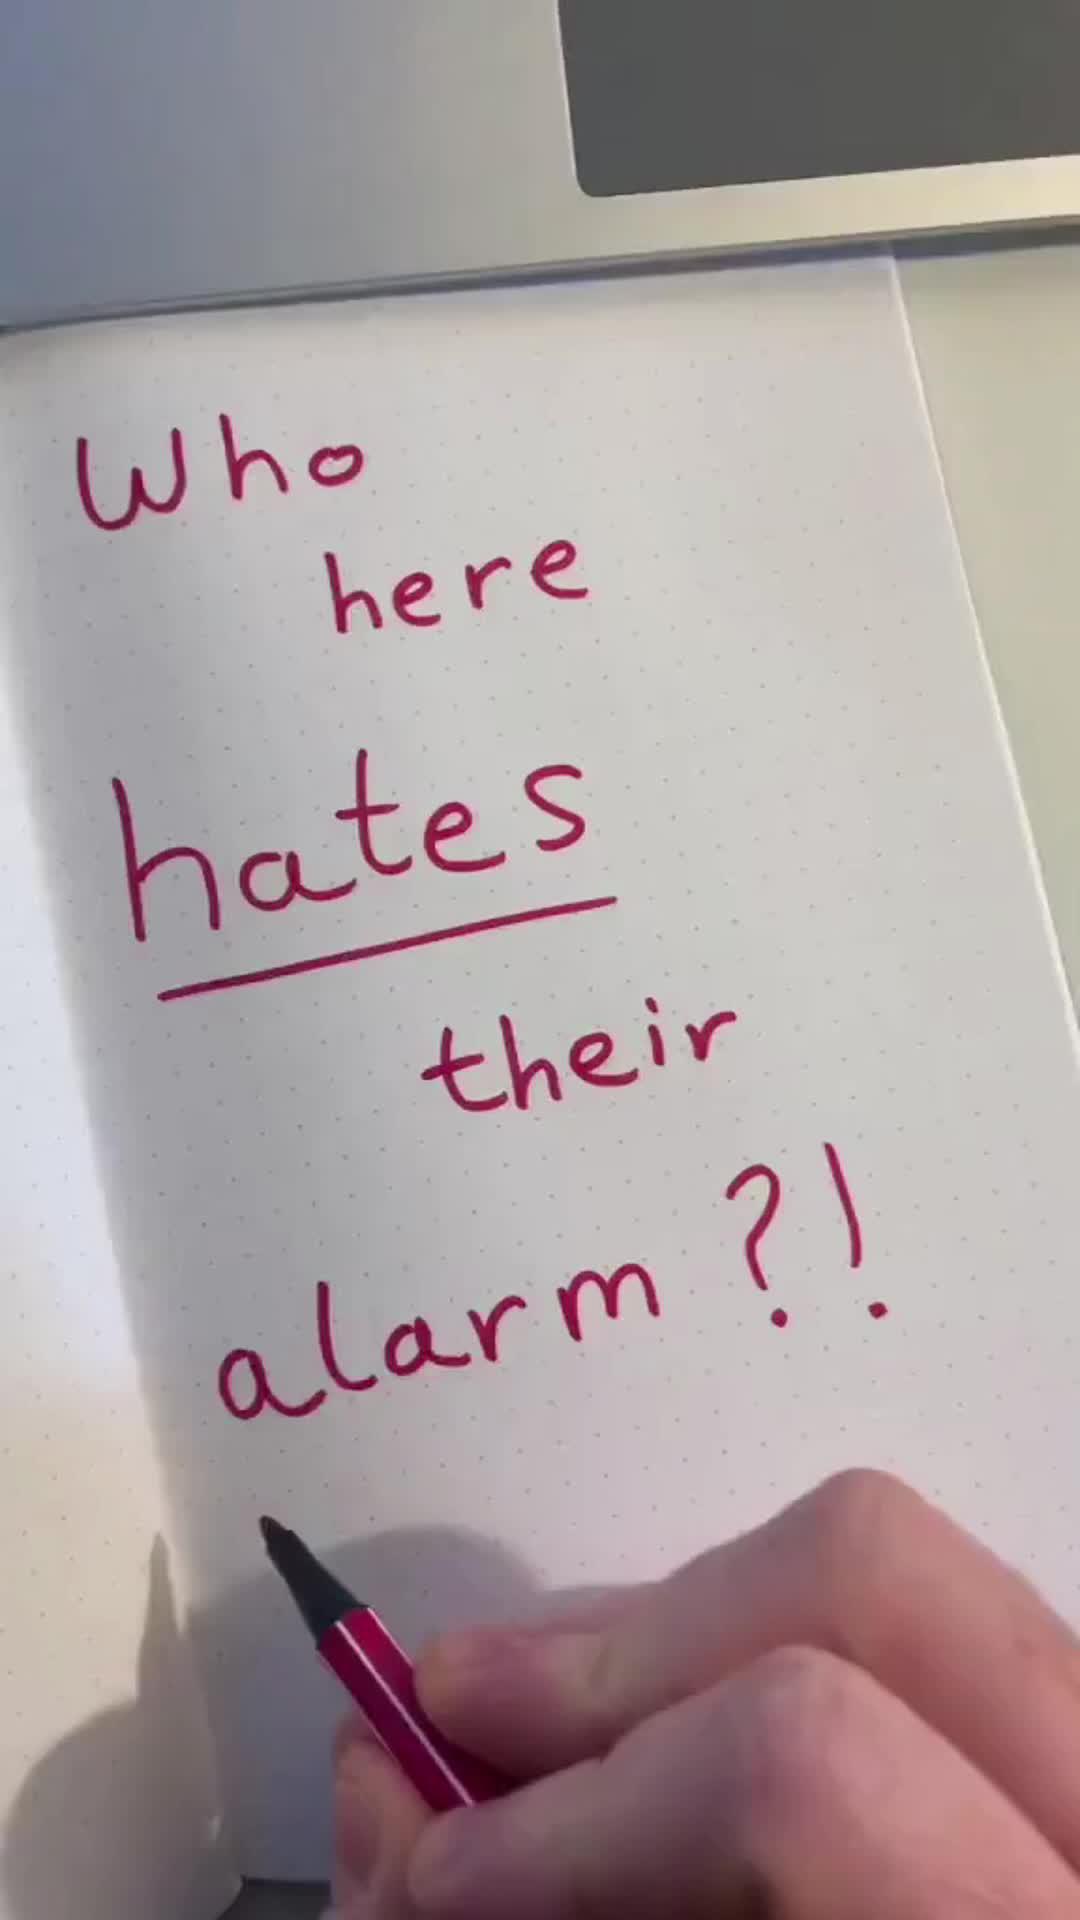 Who
here
hates
their
alarm?!